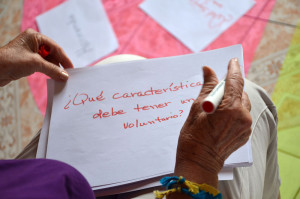 ¿Qué característica
debe tener un
voluntario?